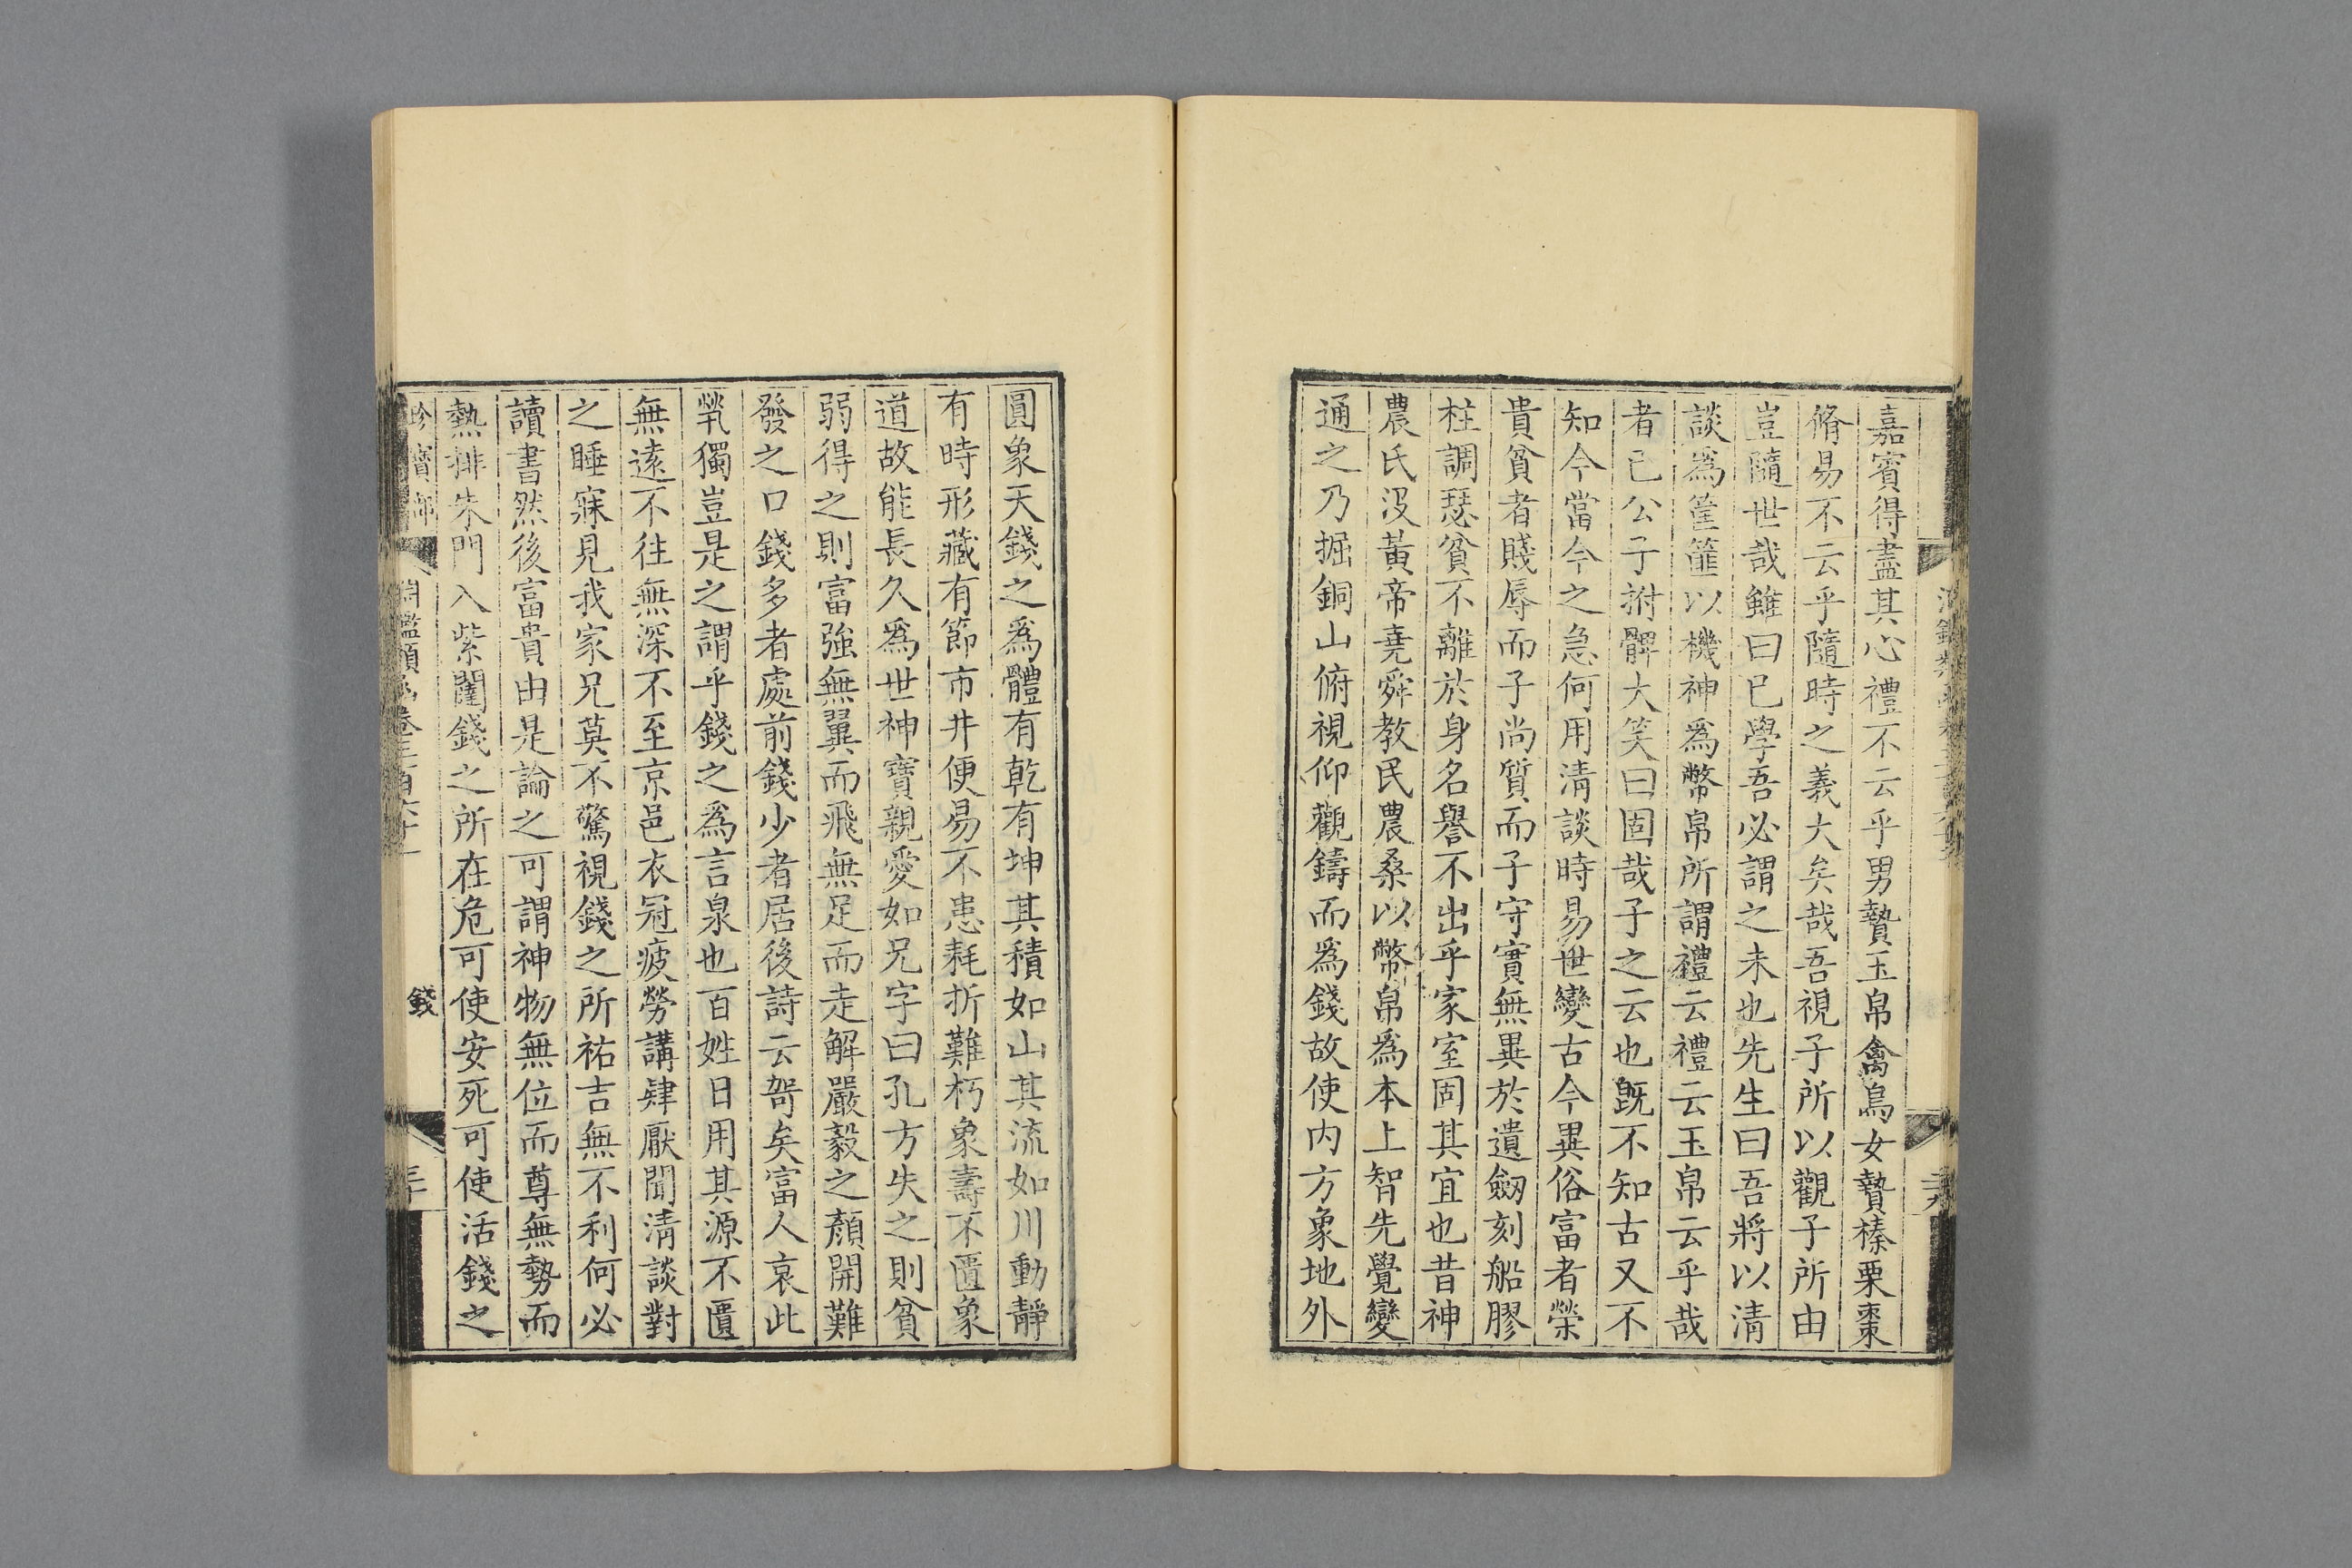 嘉賓得盡其心禮不云乎男贄玉帛禽鳥女贄榛栗棗
脩易不云乎隨時之義大矣哉吾視子所以觀子所由
豈隨世哉雖曰已學吾必謂之未也先生曰吾將以清
談爲筐篚以機神爲幣帛所謂禮云禮云玉帛云乎哉
者已公子拊髀大笑曰固哉子之云也旣不知古又不
知今當今之急何用清談時易世變古今異俗富者榮
貴貧者賤辱而子尚質而子守實無異於遺劒刻船膠
柱調瑟貧不離於身名譽不出乎家室固其宜也昔神
農氏沒黃帝堯舜教民農桑以幣帛爲本上智先覺變
通之乃掘銅山俯視仰觀鑄而爲錢故使内方象地外
圓象天錢之爲體有乾有坤其積如山其流如川動靜
有時形藏有節市井便易不患耗折難朽象壽不匱象
道故能長久爲世神寶親愛如兄字曰孔方失之則貧
弱得之則富強無翼而飛無足而走解嚴毅之顏開難
發之口錢多者處前錢少者居後詩云哿矣富人哀此
煢獨豈是之謂乎錢之爲言泉也百姓日用其源不匱
無遠不往無深不至京邑衣冠疲勞講肄厭聞清談對
之睡寐見我家兄莫不驚視錢之所祐吉無不利何必
讀書然後富貴由是論之可謂神物無位而尊無勢而
熱排朱門入紫闥錢之所在危可使安死可使活錢之
珍寶部 淵鑑類函卷三百六十一 錢 三十